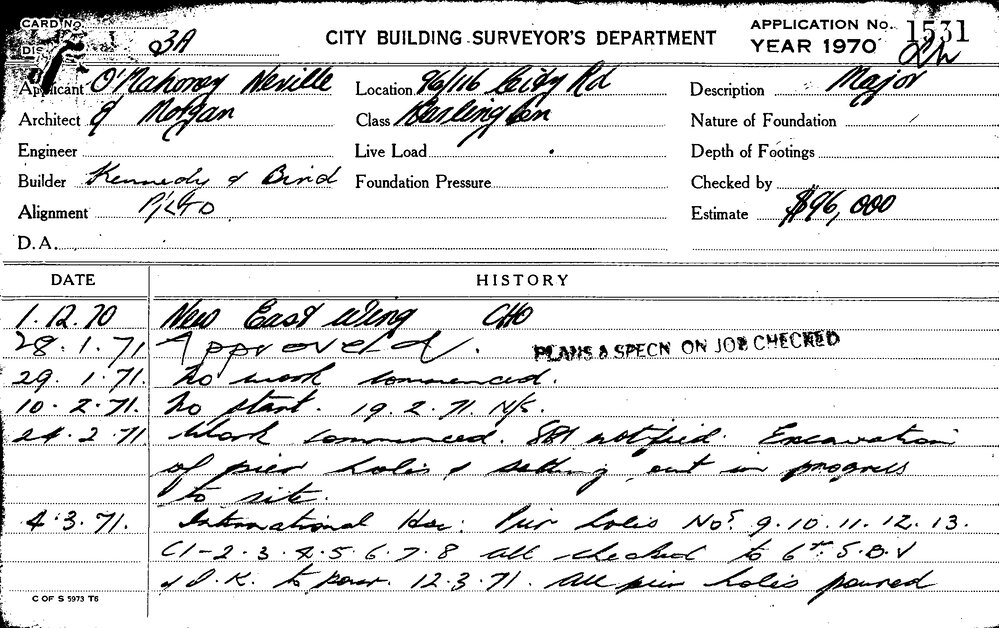 CARD No.
3A
CITY BUILDING SURVEYOR'S DEPARTMENT
APPLICATION No. 1531
YEAR 1970
Applicant O'Mahoney Neville
Architect & Morgan
Engineer
Builder Kennedy & Bird
Alignment P/LTD
D.A.
Location 96/116 City Rd
Class Darlington
Live Load
Foundation Pressure
Description Major
Nature of Foundation
Depth of Footings
Checked by
Estimate $96,000
DATE HISTORY
1.12.70 New East Wing CHO
28.1.71 Approved. PLANS & SPECN ON JOB CHECKED
29.1.71. No work commenced.
10.2.71. No start. 19.2.71. N/S.
24.2.71 Work commenced. notified. Excavation
of pier holes & setting out in progress
to site.
4.3.71. International Hse: Pier holes Nos. 9.10.11.12.13.
C1-2.3.4.5.6.7.8 all checked to 6
& O.K. to pour. 12.3.71. All pier holes poured
C OF S 5973 T6